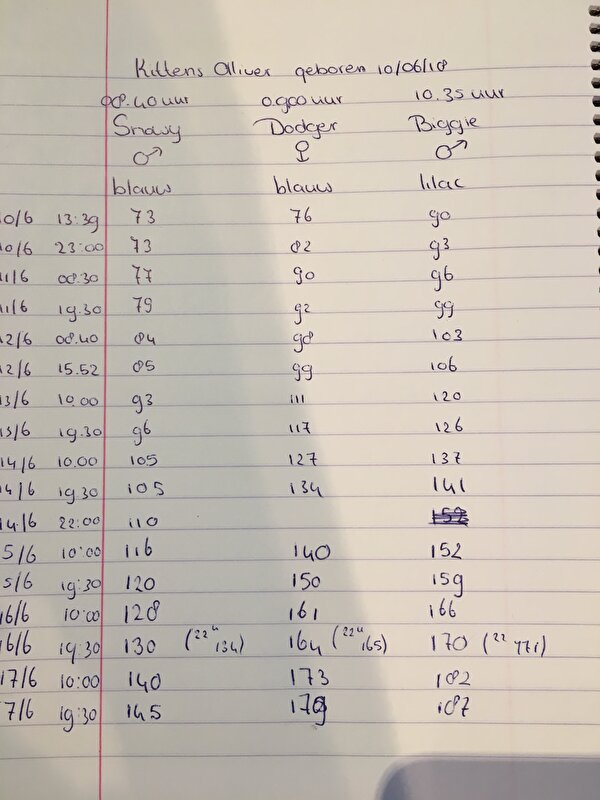 Kittens Olliver geboren 10/06/18
08.40 uur 0.900 uur 10.35 uur
Snowy Dodger Biggie
♂ ♀ ♂
blauw blauw lilac
10/6 13:39 73 76 90
10/6 23:00 73 82 93
11/6 08.30 77 90 96
11/6 19.30 79 92 99
12/6 08.40 84 98 103
12/6 15.52 85 99 106
13/6 10.00 93 111 120
13/6 19.30 96 117 126
14/6 10.00 105 127 137
14/6 19.30 105 134 141
14/6 22:00 110 152
5/6 10:00 116 140 152
5/6 19:30 120 150 159
16/6 10:00 128 161 166
16/6 19.30 130 (22u 134) 164 (22u 165) 170 (22 171)
17/6 10:00 140 173 182
7/6 19:30 145 179 187